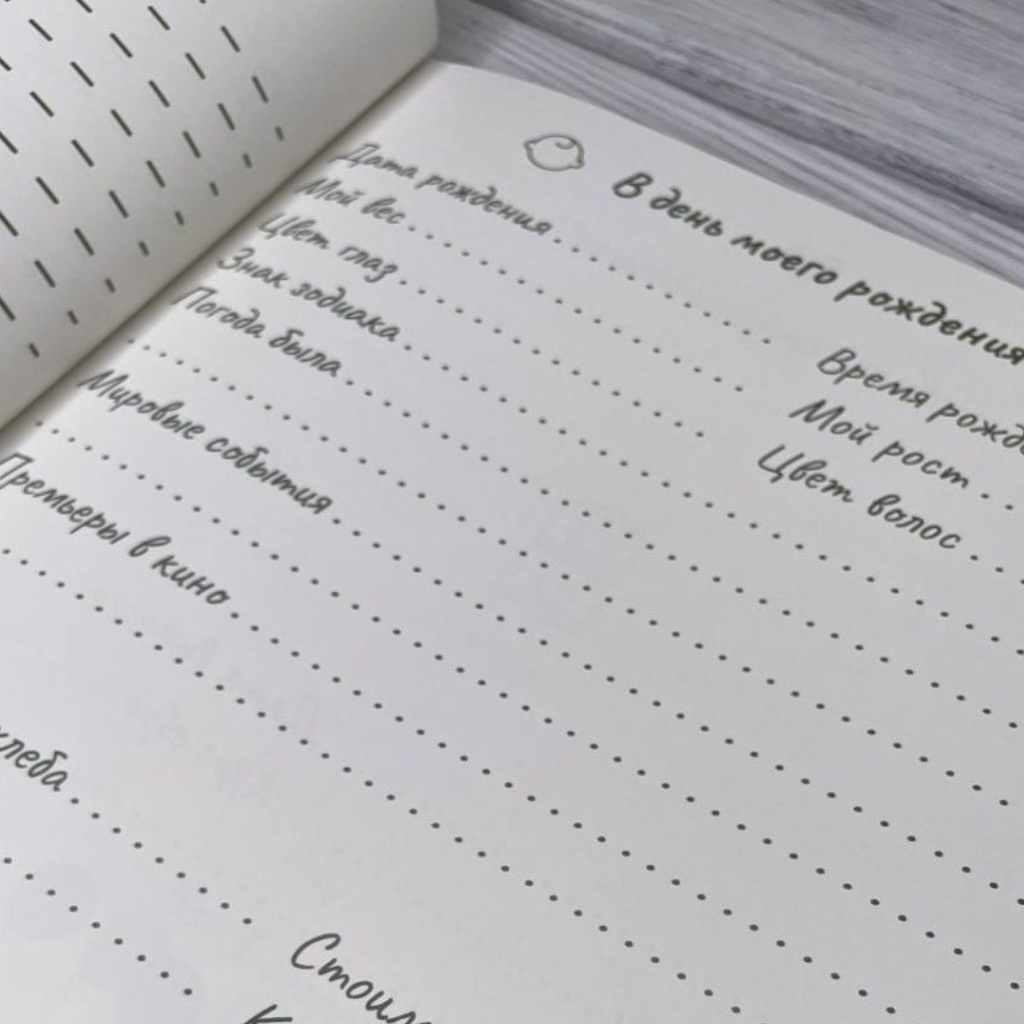 В день моего рождения
Дата рождения
Время рожд
Мой вес
Мой рост
Цвет глаз
Цвет волос
Знак зодиака
Погода была
Мировые события
Премьеры в кино
хлеба
Стоим
К